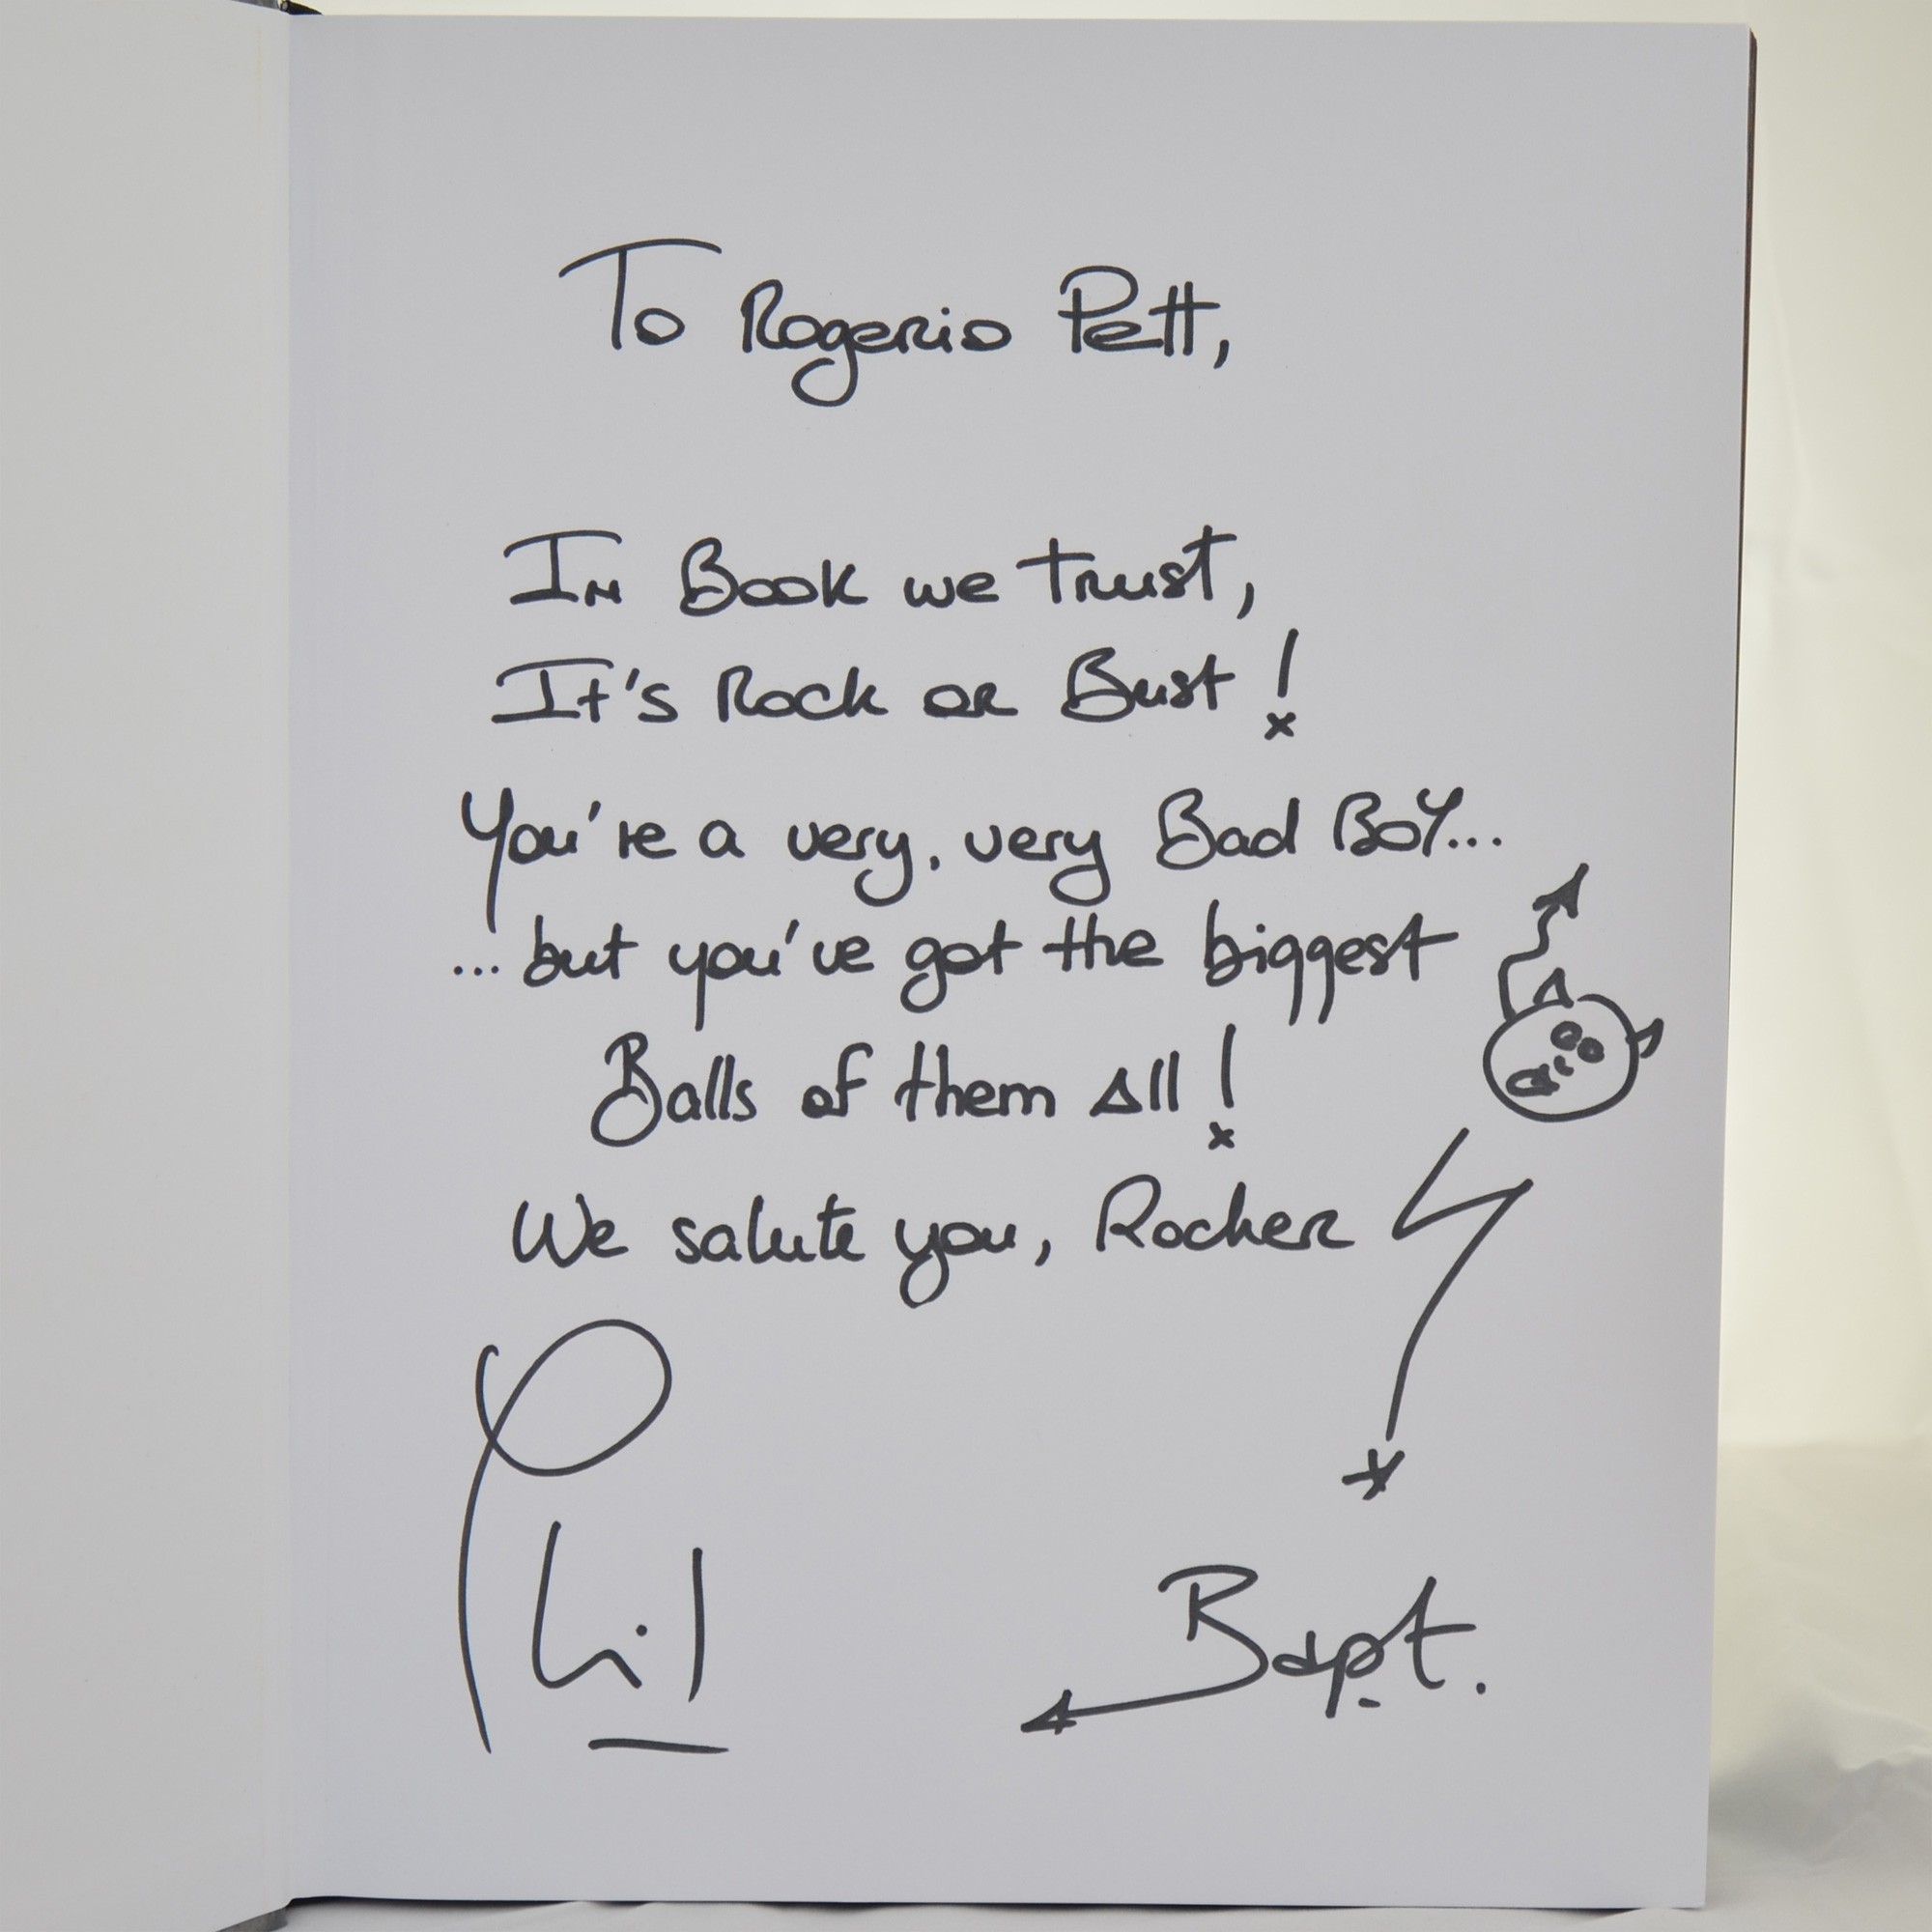 To Rogerio Pett,
In Book we trust,
It's Rock or Bust !
You're a very, very Bad Boy...
... but you've got the biggest
Balls of them All !
We salute you, Rocker
Phil
Bapt.